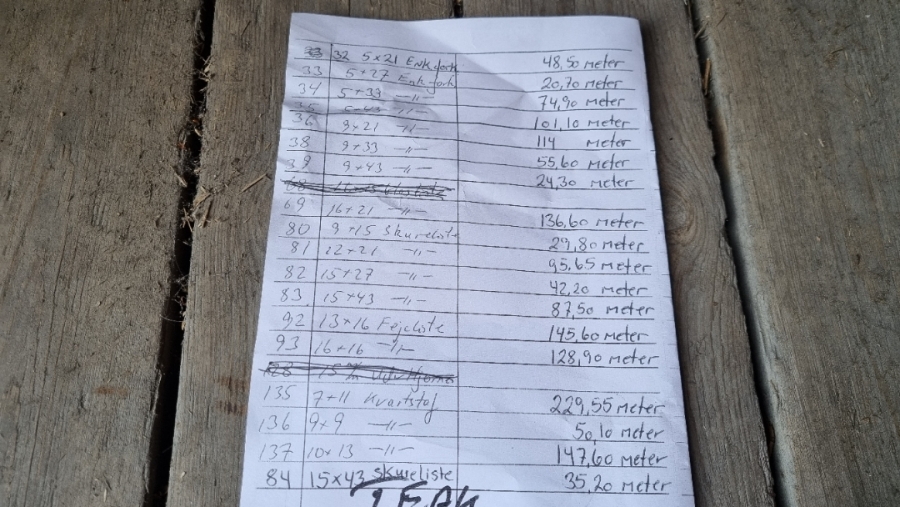 32 5x21 Enkfork 48,50 meter
33 5+27 Enkfork 20,70 meter
34 5+39 -"- 74,90 meter
35 5-43 -"- 101,10 meter
36 9x21 -"- 114 meter
38 9+33 -"- 55,60 meter
39 9+43 -"- 24,30 meter
69 16+21 -"- 136,60 meter
80 9+15 Skureliste 29,80 meter
81 12+21 -"- 95,65 meter
82 15+27 -"- 42,20 meter
83 15+43 -"- 87,50 meter
92 13+16 Fejeliste 145,60 meter
93 16+16 -"- 128,90 meter
135 7+11 Kvartstaf 229,55 meter
136 9x9 -"- 50,10 meter
137 10x13 -"- 147,60 meter
84 15x43 Skureliste 35,20 meter
TEAK